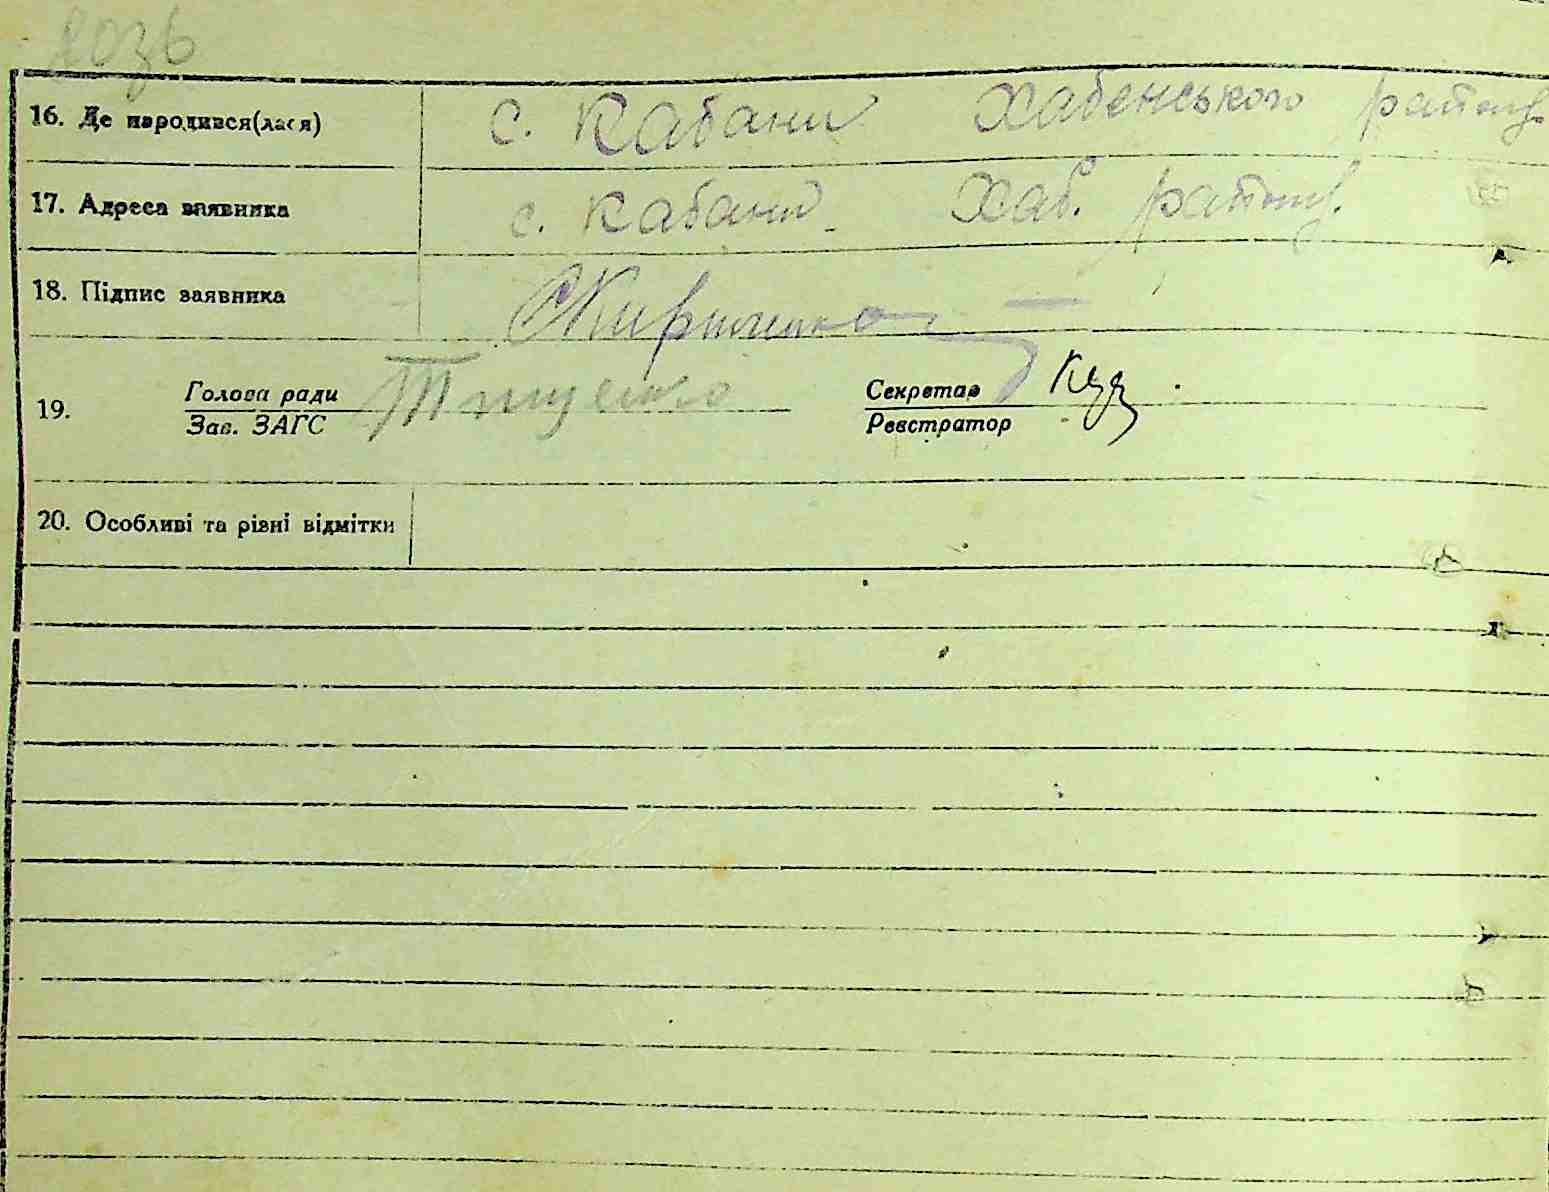 16. Де народився(лася) с. Кабани Хабенського району
17. Адреса заявника с. Кабани Хаб. району.
18. Підпис заявника
19. Голова ради Тищенко Секретар
Зав. ЗАГС Реєстратор
20. Особливі та різні відмітки